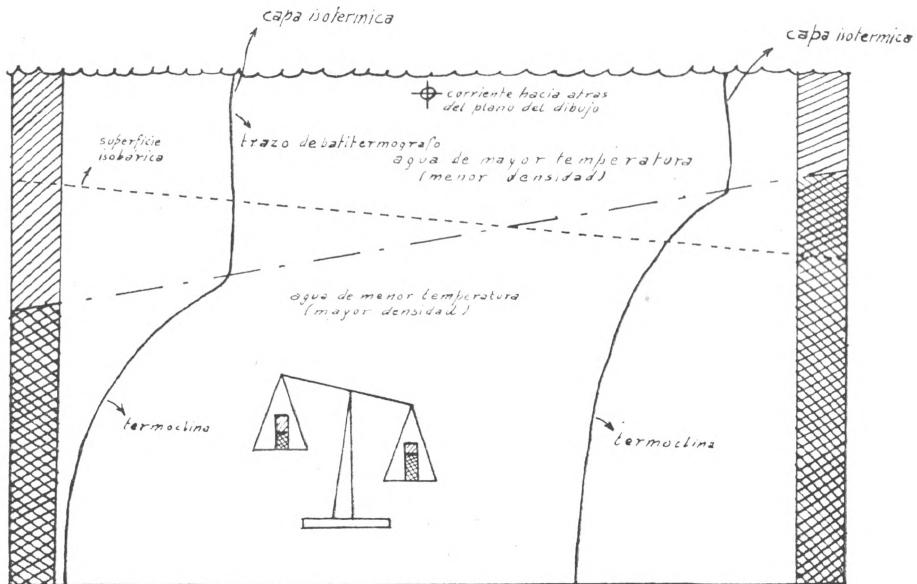 capa isotermica
capa isotermica
corriente hacia atras
del plano del dibujo
superficie
isobarica
trazo de batitermografo
agua de mayor temperatura
(menor densidad)
agua de menor temperatura
(mayor densidad)
termoclina
termoclina